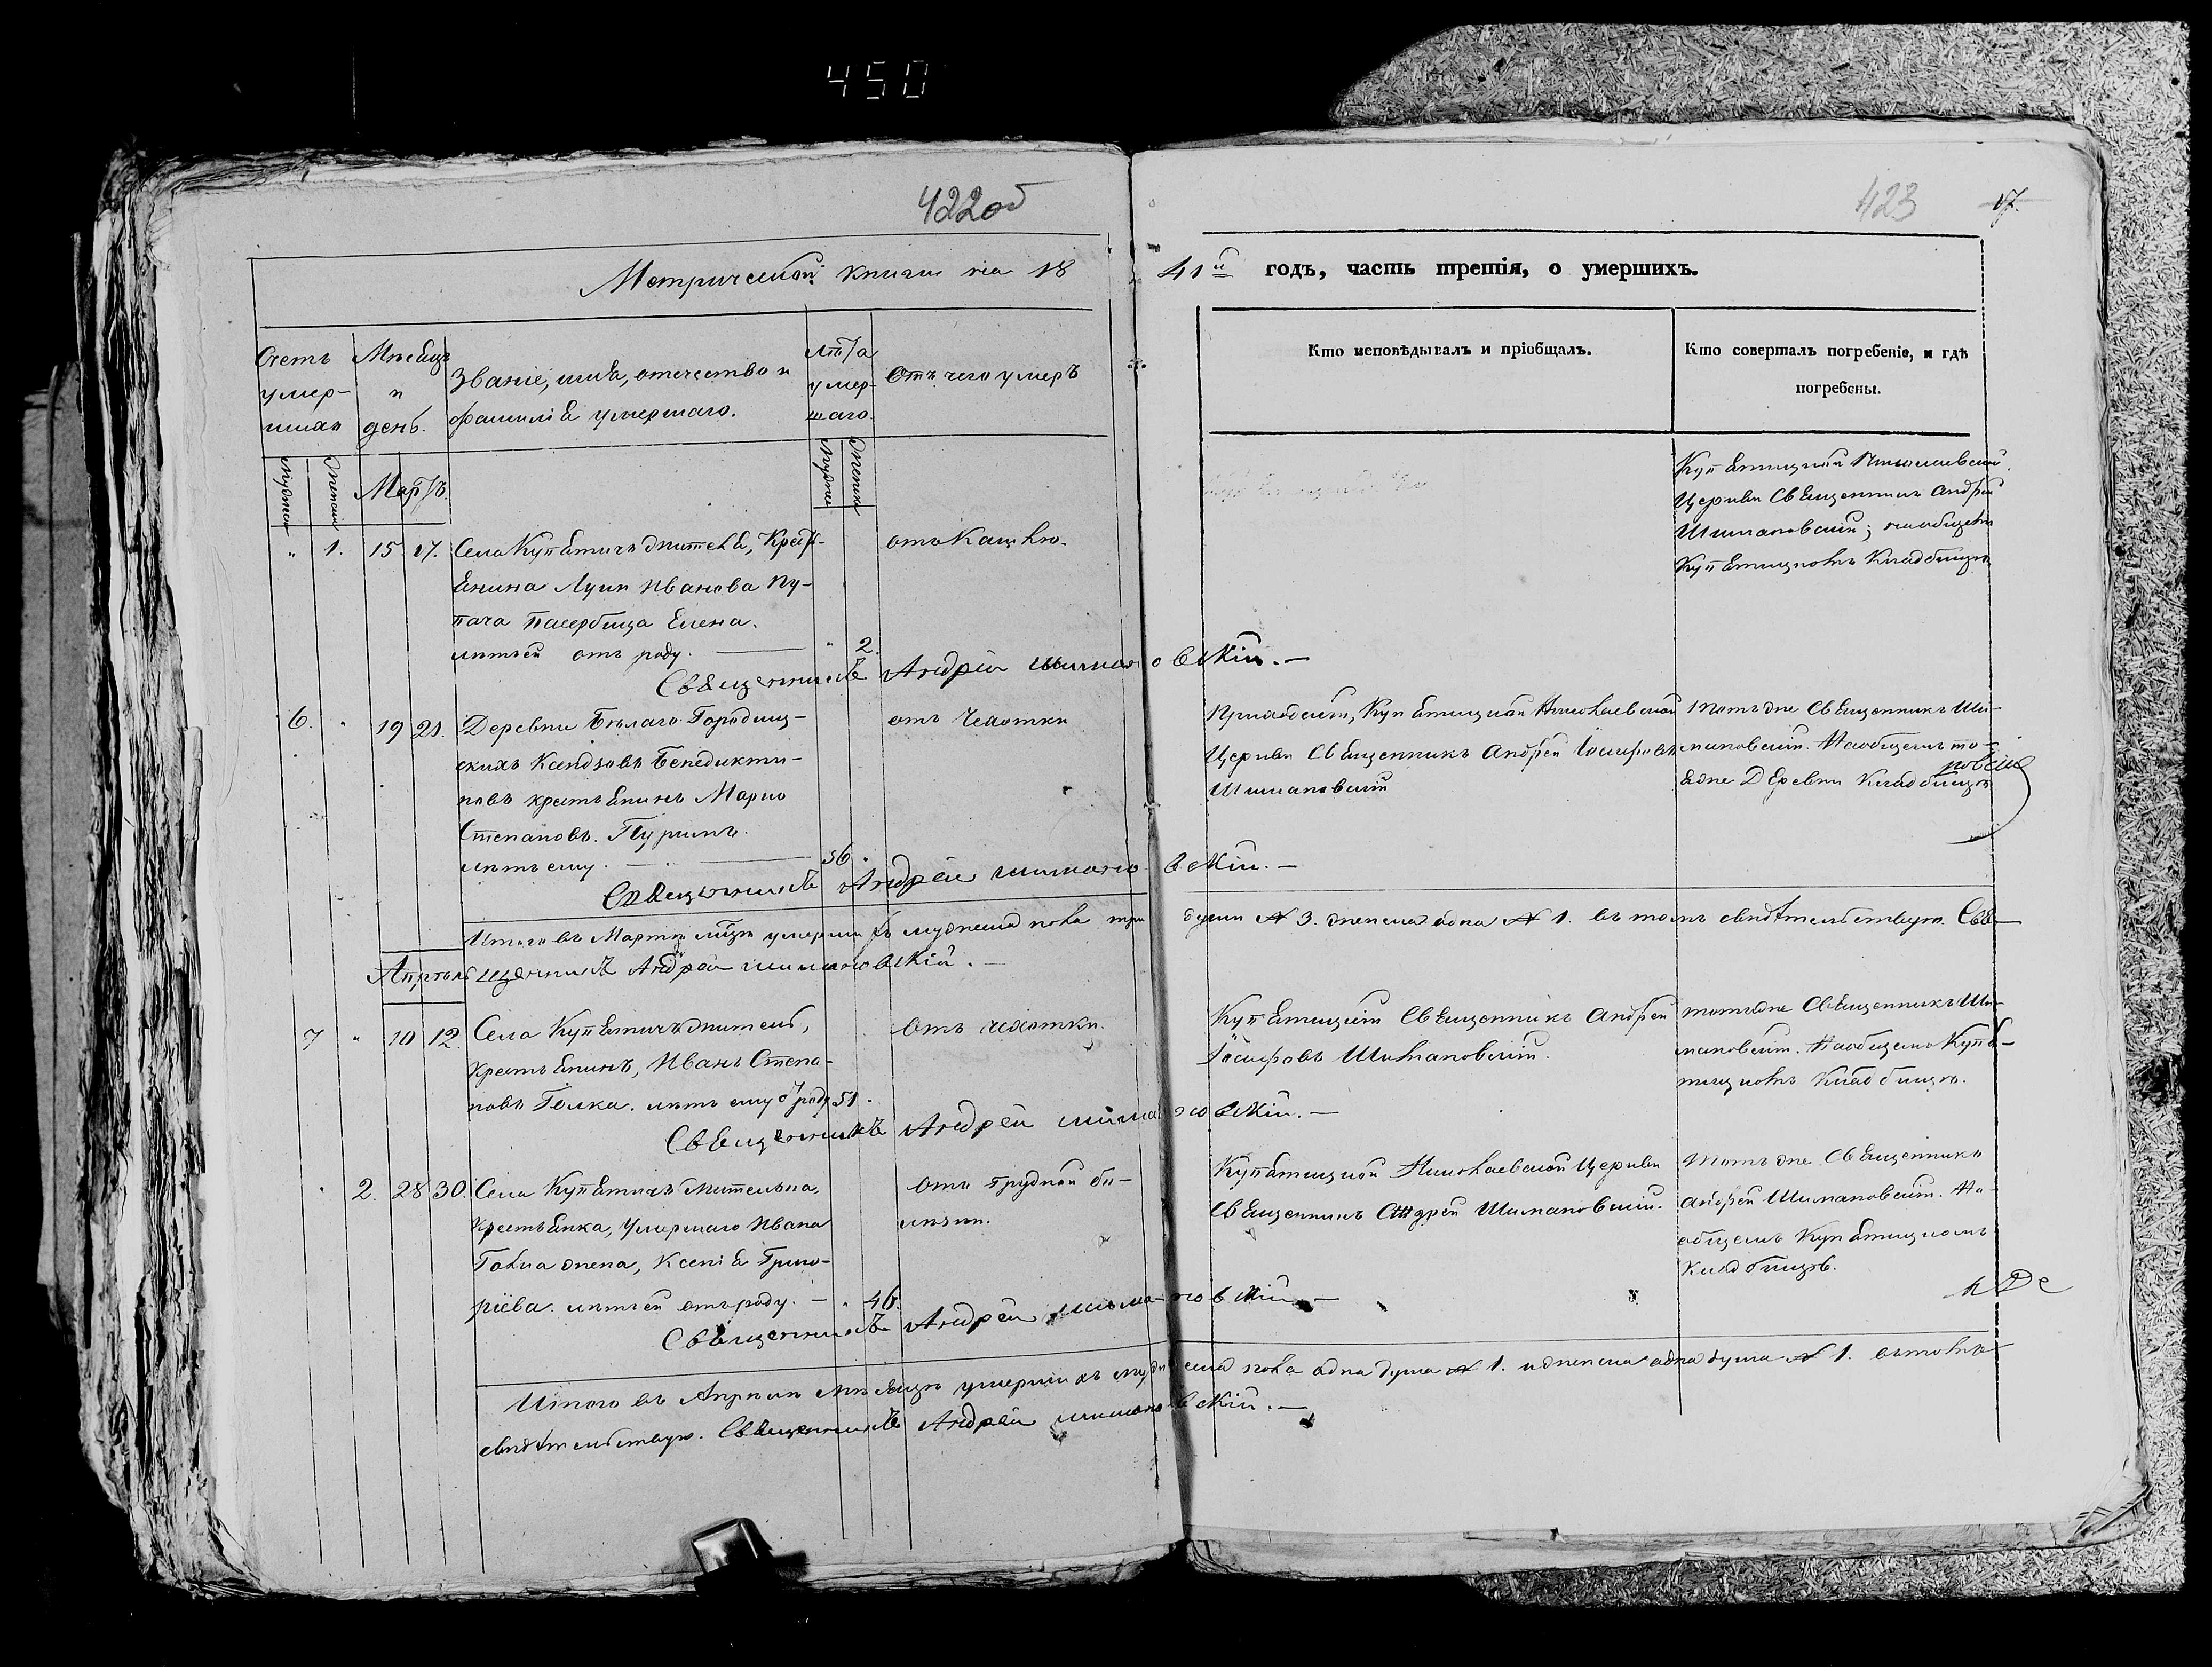 450
422об
423
17.
Метрической книги на 18
41й годъ, часть третія, о умершихъ.
Счетъ умер- шихъ
Мѣсяцъ и день.
Званіе, имя, отечество и
фамилія умершаго.
Лѣта умер- шаго.
Отъ чего умеръ
Кто исповѣдывалъ и пріобщалъ.
Кто совершалъ погребеніе, и гдѣ
погребены.
Мужска
Женска
Мартъ.
Мужска
Женска
" 1. 15 17. Села Купятичъ жителя, Крест-
янина Луки Иванова Пу-
пача пасербица Елена.
лѣтъ ей отъ роду. — " 2.
отъ Кашлю.
Купятицкой Николаевской
Церкви Священникъ Андрей
Шимановскій; на общемъ
Купятицкомъ Кладбищѣ
Священникъ Андрей Шимановскій. —
6. " 19 21. Деревни Бѣлаго Городищ-
скихъ Ксендзовъ Бенедикти-
новъ крестьянинъ Марко
Степановъ.
лѣтъ ему. — 56 "
отъ Чахотки
Приходскій, Купятицкой Николаевской
Церкви Священникъ Андрей Іосифовъ
Шимановскій
тотъ же Священникъ Ши-
мановскій. На общемъ то-
я же Деревни Кладбищѣ
Священникъ Андрей Шимановскій. —
Итого въ Мартѣ мѣсяцѣ умершихъ мужеска пола три души № 3. женска одна № 1. въ томъ свидѣтельствую. Свя-
щенникъ Андрей Шимановскій. —
Апрѣль
7 " 10 12. Села Купятичъ житель,
крестьянинъ, Иванъ Степа-
новъ Голка. лѣтъ ему отъ роду 51.
Отъ чахотки.
Купятицкій Священникъ Андрей
Іосифовъ Шимановскій.
тотъ же Священникъ Ши-
мановскій. На общемъ Купя-
тицкомъ Кладбищѣ.
Священникъ Андрей Шимановскій. —
" 2. 28 30. Села Купятичъ жителька,
крестьянка, умершаго Ивана
Голка жена, Ксенія Григо-
ріева. лѣтъ ей отъ роду. — " 46.
Отъ грудной бо-
лѣзни.
Купятицкой Николаевской Церкви
Священникъ Андрей Шимановскій.
Тотъ же Священникъ
Андрей Шимановскій. На
общемъ Купятицкомъ
Кладбищѣ.
Священникъ Андрей Шимановскій. —
Итого въ Апрѣлѣ мѣсяцѣ умершихъ мужеска пола одна душа № 1. и женска одна душа № 1. въ томъ
свидѣтельствую. Священникъ Андрей Шимановскій. —